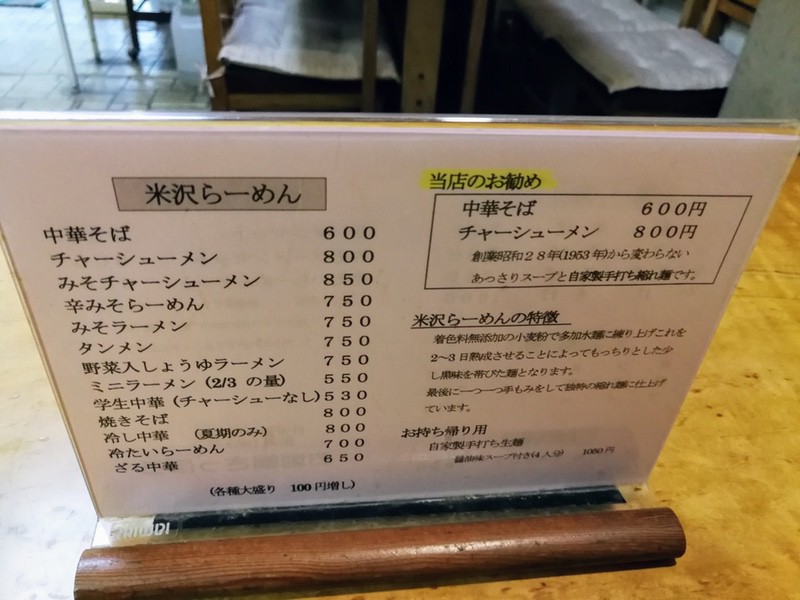 米沢らーめん
中華そば 600
チャーシューメン 800
みそチャーシューメン 850
辛みそらーめん 750
みそラーメン 750
タンメン 750
野菜入しょうゆラーメン 750
ミニラーメン (2/3 の量) 550
学生中華 (チャーシューなし) 530
焼きそば 800
冷し中華 (夏期のみ) 800
冷たいらーめん 700
ざる中華 650
(各種大盛り 100円増し)
当店のお勧め
中華そば 600円
チャーシューメン 800円
創業昭和28年(1953年)から変わらない
あっさりスープと自家製手打ち縮れ麺です。
米沢らーめんの特徴
着色料無添加の小麦粉で多加水麺に練り上げこれを
2~3日熟成させることによってもっちりとした少
し黒味を帯びた麺となります。
最後に一つ一つ手もみをして独特の縮れ麺に仕上げ
ています。
お持ち帰り用
自家製手打ち生麺
醤油味スープ付き(4人分) 1080円